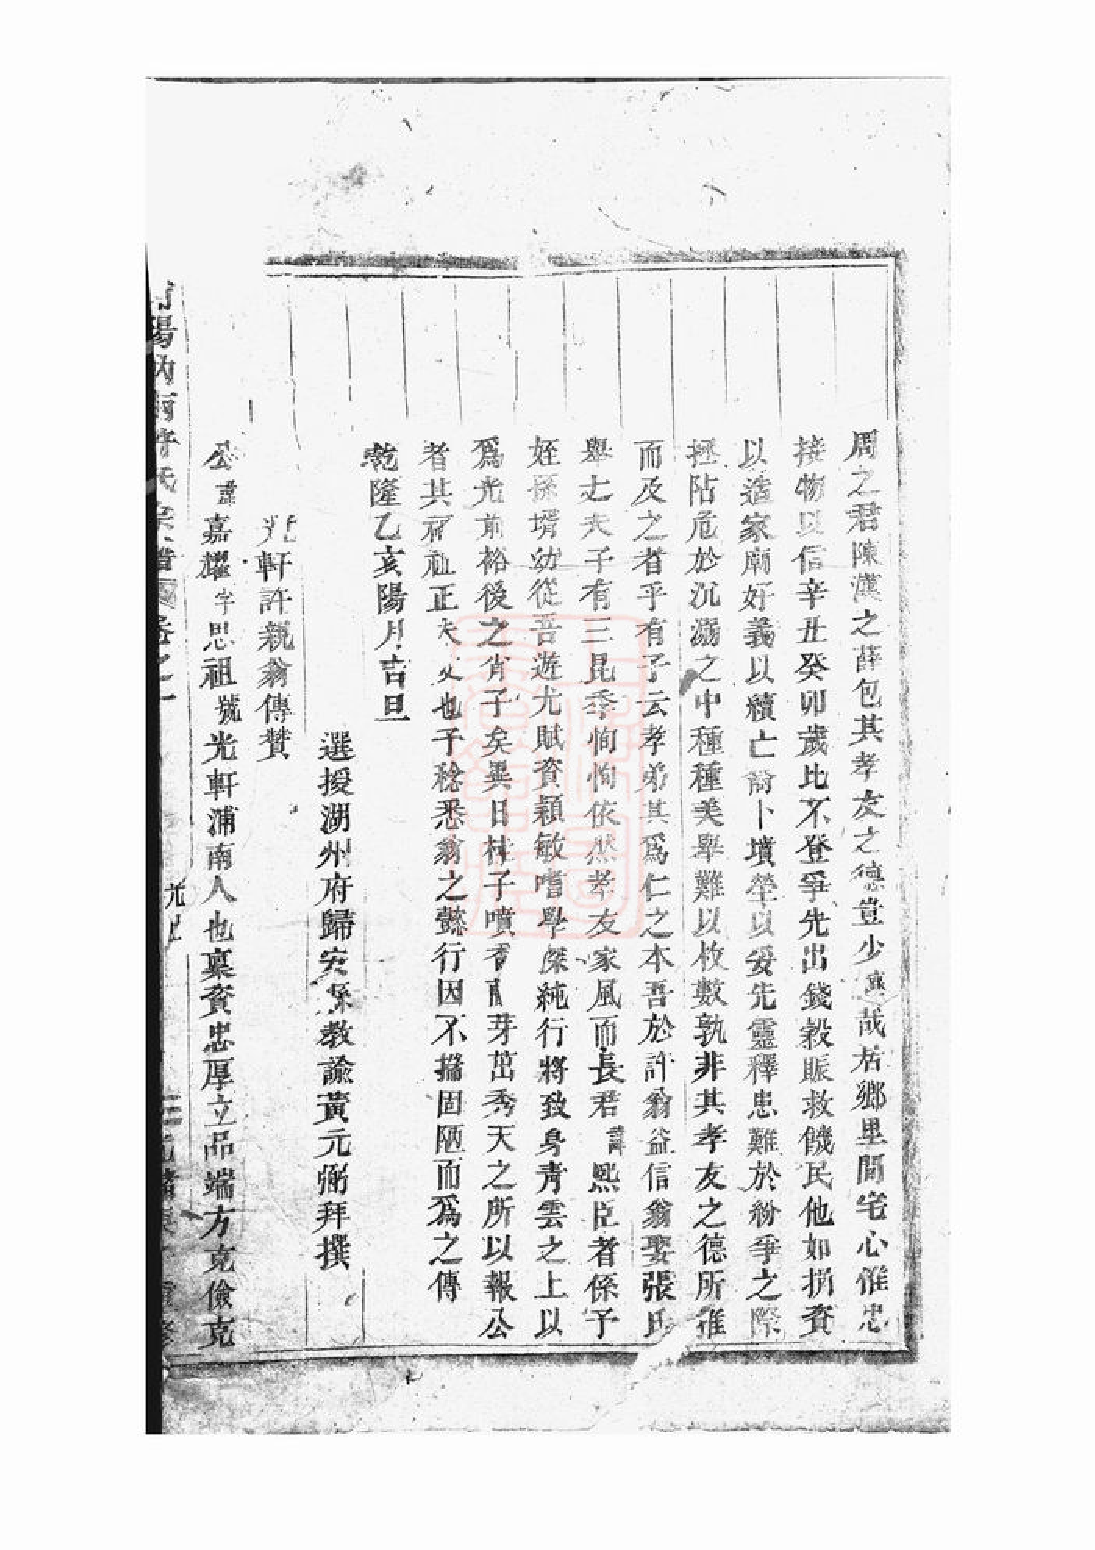 周之君陳漢之薛包其孝友之德豈少哉居鄉里間宅心惟忠
接物以信辛丑癸卯歲比不登爭先出錢穀賑救饑民他如捐資
以造家廟好義以續亡嗣卜墳塋以妥先靈釋患難於紛爭之際
拯阽危於沉溺之中種種美舉難以枚數孰非其孝友之德所推
而及之者乎有子云孝弟其為仁之本吾於許翁益信翁娶張氏
舉丈夫子有三昆季恂恂依然孝友家風而長君諱熙臣者係予
姪孫壻幼從吾遊尤賦資穎敏嗜學傑純行將致身青雲之上以
爲光前裕後之肖子矣異日桂子噴香蘭芽茁秀天之所以報公
者其祖正大也予稔悉翁之懿行因不揣固陋而爲之傳
乾隆乙亥陽月吉旦
選授湖州府歸安縣教諭黃元弼拜撰
光軒許親翁傳贊
公諱嘉耀字思祖號光軒浦南人也稟資忠厚立品端方克儉克
陽許氏宗譜卷之一